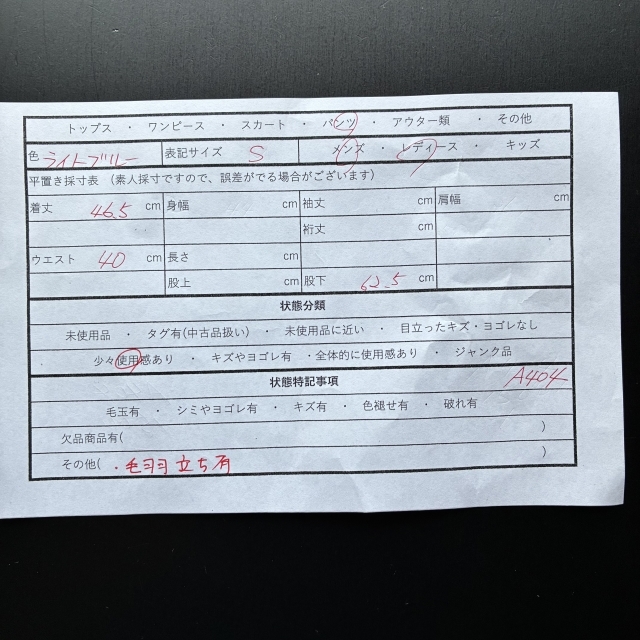 トップス ・ ワンピース ・ スカート ・ パンツ ・ アウター類 ・ その他
色 ライトブルー 表記サイズ S メンズ ・ レディース ・ キッズ
平置き採寸表 (素人採寸ですので、誤差がでる場合がございます)
着丈 46.5 cm 身幅 cm 袖丈 cm 肩幅 cm
裄丈 cm
ウエスト 40 cm 長さ cm
股上 cm 股下 62.5 cm
状態分類
未使用品 ・ タグ有(中古品扱い) ・ 未使用品に近い ・ 目立ったキズ・ヨゴレなし
少々使用感あり ・ キズやヨゴレ有 ・全体的に使用感あり ・ ジャンク品
状態特記事項 A404
毛玉有 ・ シミやヨゴレ有 ・ キズ有 ・ 色褪せ有 ・ 破れ有
欠品商品有( )
その他( ・毛羽立ち有 )